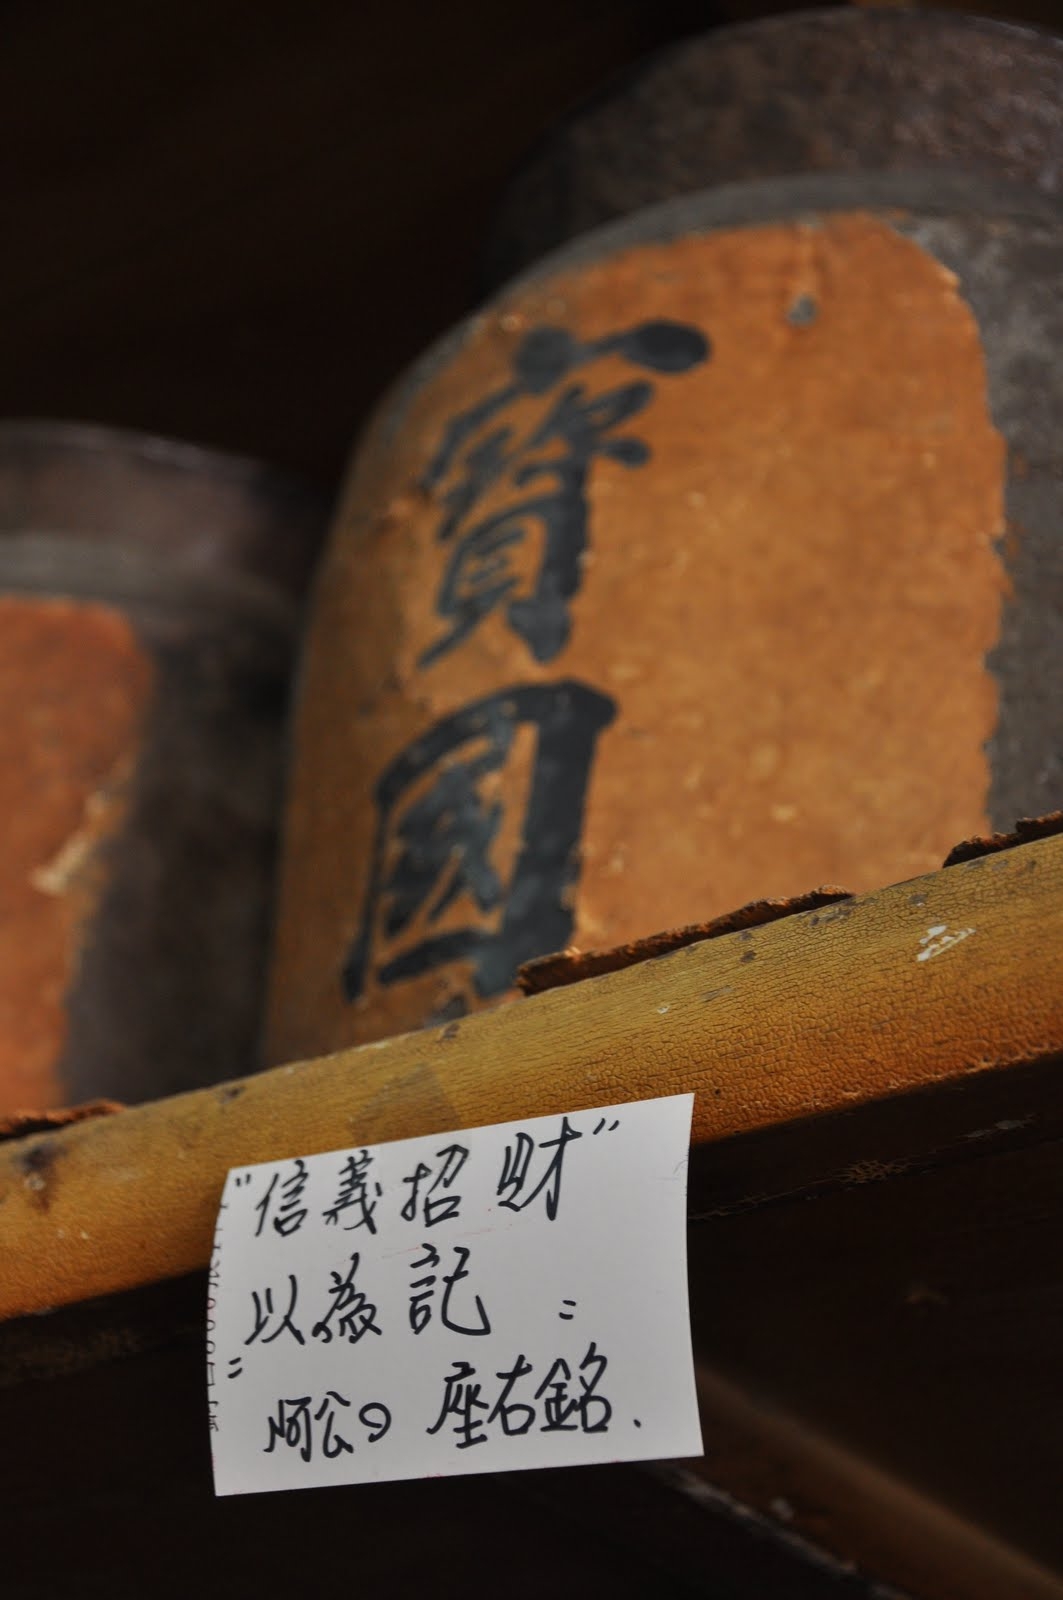 寶國
"信義招財"
以為記 =
= 阿公の 座右銘.